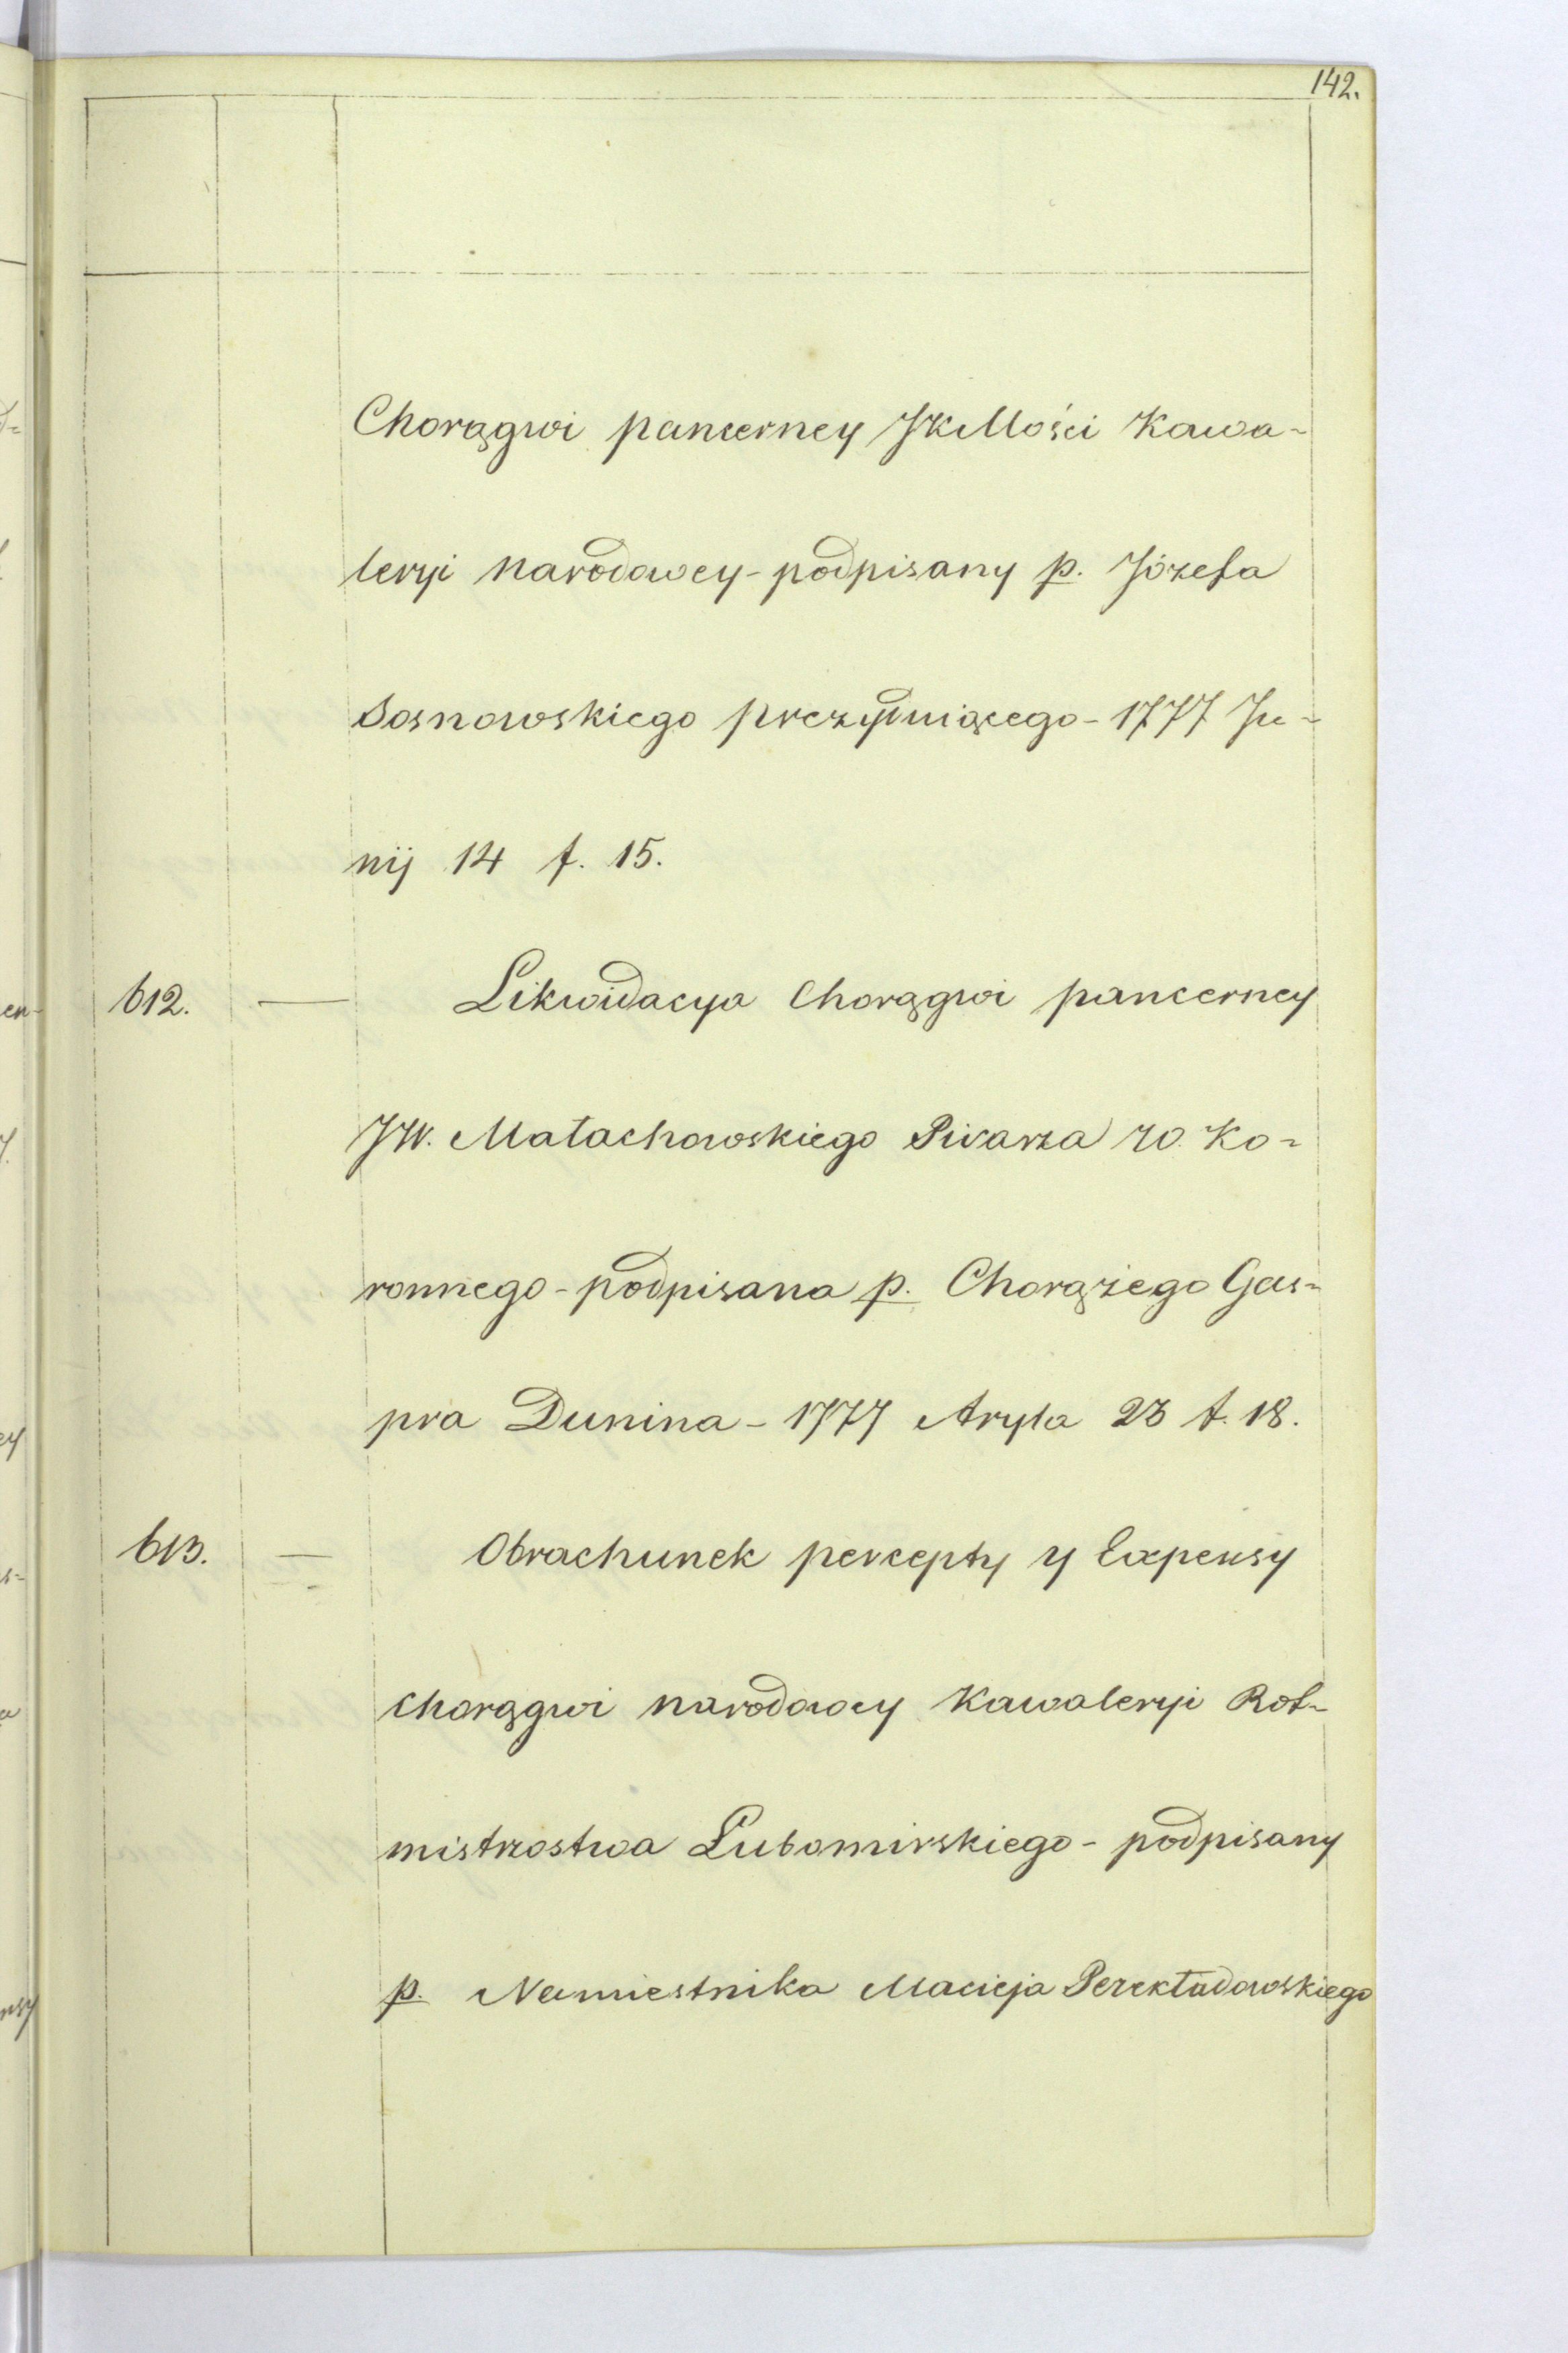 142.
Chorągwi pancerney JKMości Kawa-
leryi narodowey - podpisany p. Józefa
Sosnowskiego prezyduiącego - 1777 Ju-
nij 14 f. 15.
612. — Likwidacya Chorągwi pancerney
JW. Małachowskiego Pisarza w. Ko-
ronnego - podpisana p. Chorążego Gas-
pra Dunina - 1777 Aryla 23 f. 18.
613. — Obrachunek percepty y Expensy
chorągwi narodowey Kawaleryi Rot-
mistrzostwa Lubomirskiego - podpisany
p. Namiestnika Macieja Perekładowskiego